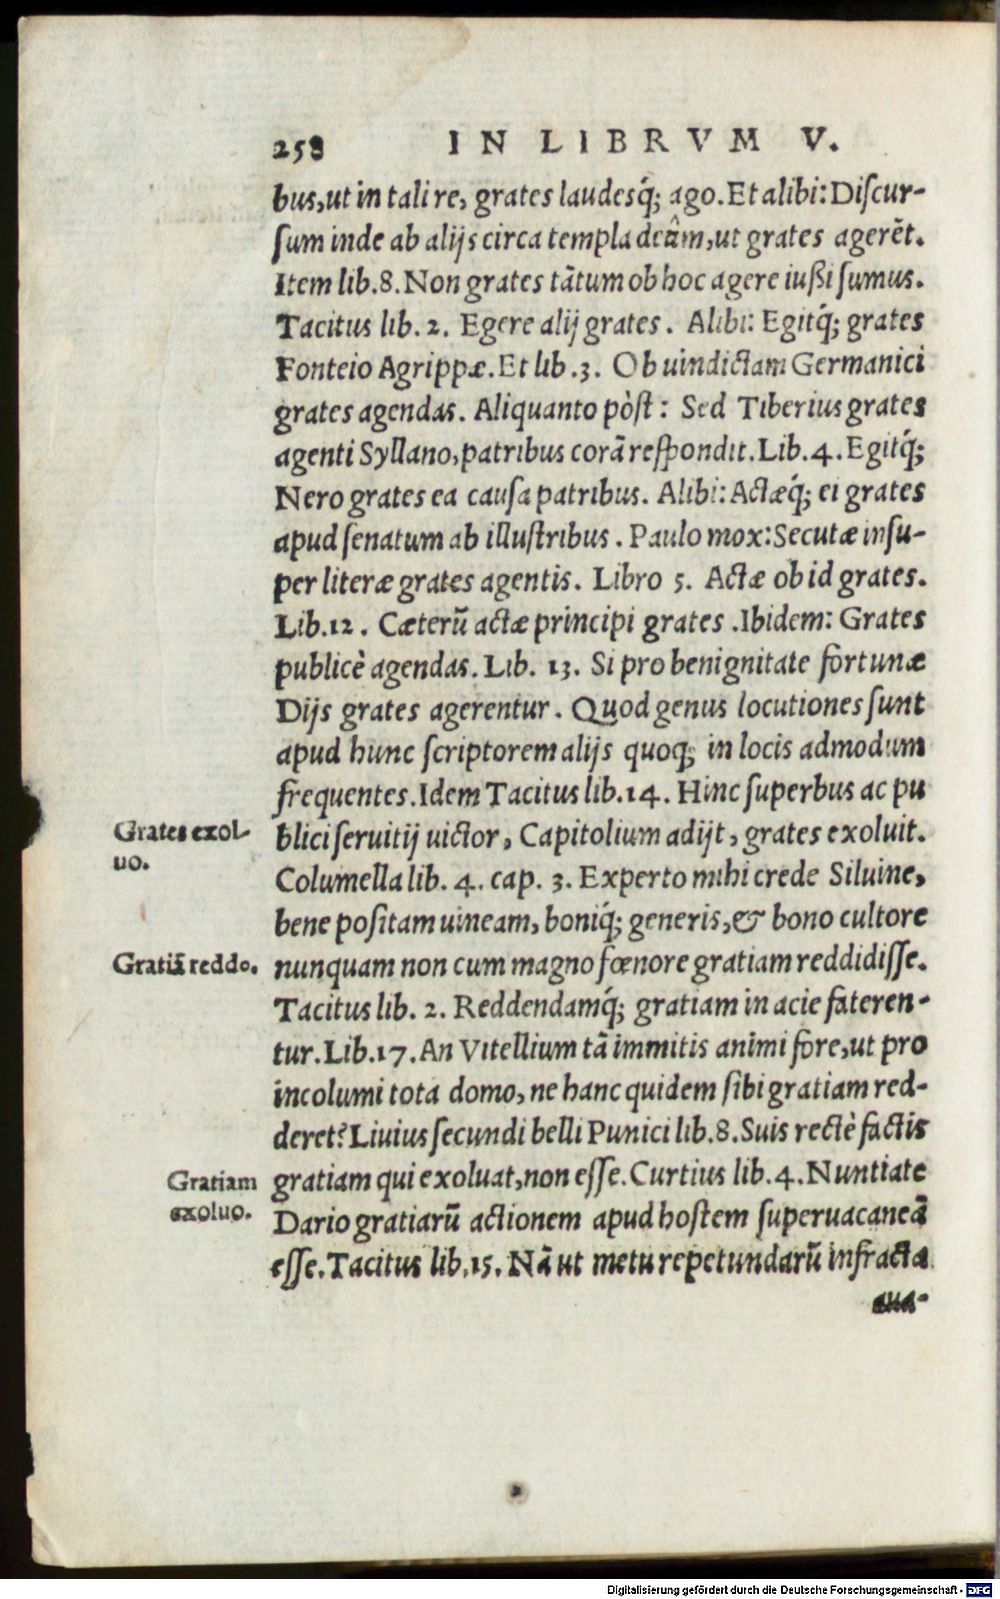 258 IN LIBRVM V.
bus, ut in tali re, grates laudesq́; ago. Et alibi: Discur-
sum inde ab alijs circa templa deûm, ut grates agerẽt.
Item lib. 8. Non grates tãtum ob hoc agere iußi sumus.
Tacitus lib. 2. Egere alij grates. Alibi: Egitq́; grates
Fonteio Agrippæ. Et lib. 3. Ob uindictam Germanici
grates agendas. Aliquanto pòst: Sed Tiberius grates
agenti Syllano, patribus corã respondit. Lib. 4. Egitq́;
Nero grates ea causa patribus. Alibi: Actæq́; ei grates
apud senatum ab illustribus. Paulo mox: Secutæ insu-
per literæ grates agentis. Libro 5. Actæ ob id grates.
Lib. 12. Cæterũ actæ principi grates. Ibidem: Grates
publicè agendas. Lib. 13. Si pro benignitate fortunæ
Dijs grates agerentur. Quod genus locutiones sunt
apud hunc scriptorem alijs quoq; in locis admodum
frequentes. Idem Tacitus lib. 14. Hinc superbus ac pu
Grates exol-
uo.
blici seruitij uictor, Capitolium adijt, grates exoluit.
Columella lib. 4. cap. 3. Experto mihi crede Siluine,
bene positam uineam, boniq́; generis, & bono cultore
Gratiã reddo.
nunquam non cum magno fœnore gratiam reddidisse.
Tacitus lib. 2. Reddendamq́; gratiam in acie fateren-
tur. Lib. 17. An Vitellium tã immitis animi fore, ut pro
incolumi tota domo, ne hanc quidem sibi gratiam red-
deret? Liuius secundi belli Punici lib. 8. Suis rectè factis
Gratiam
exoluo.
gratiam qui exoluat, non esse. Curtius lib. 4. Nuntiate
Dario gratiarũ actionem apud hostem superuacaneã
esse. Tacitus lib. 15. Nã ut metu repetundarũ infracta
aua-
Digitalisierung gefördert durch die Deutsche Forschungsgemeinschaft - DFG